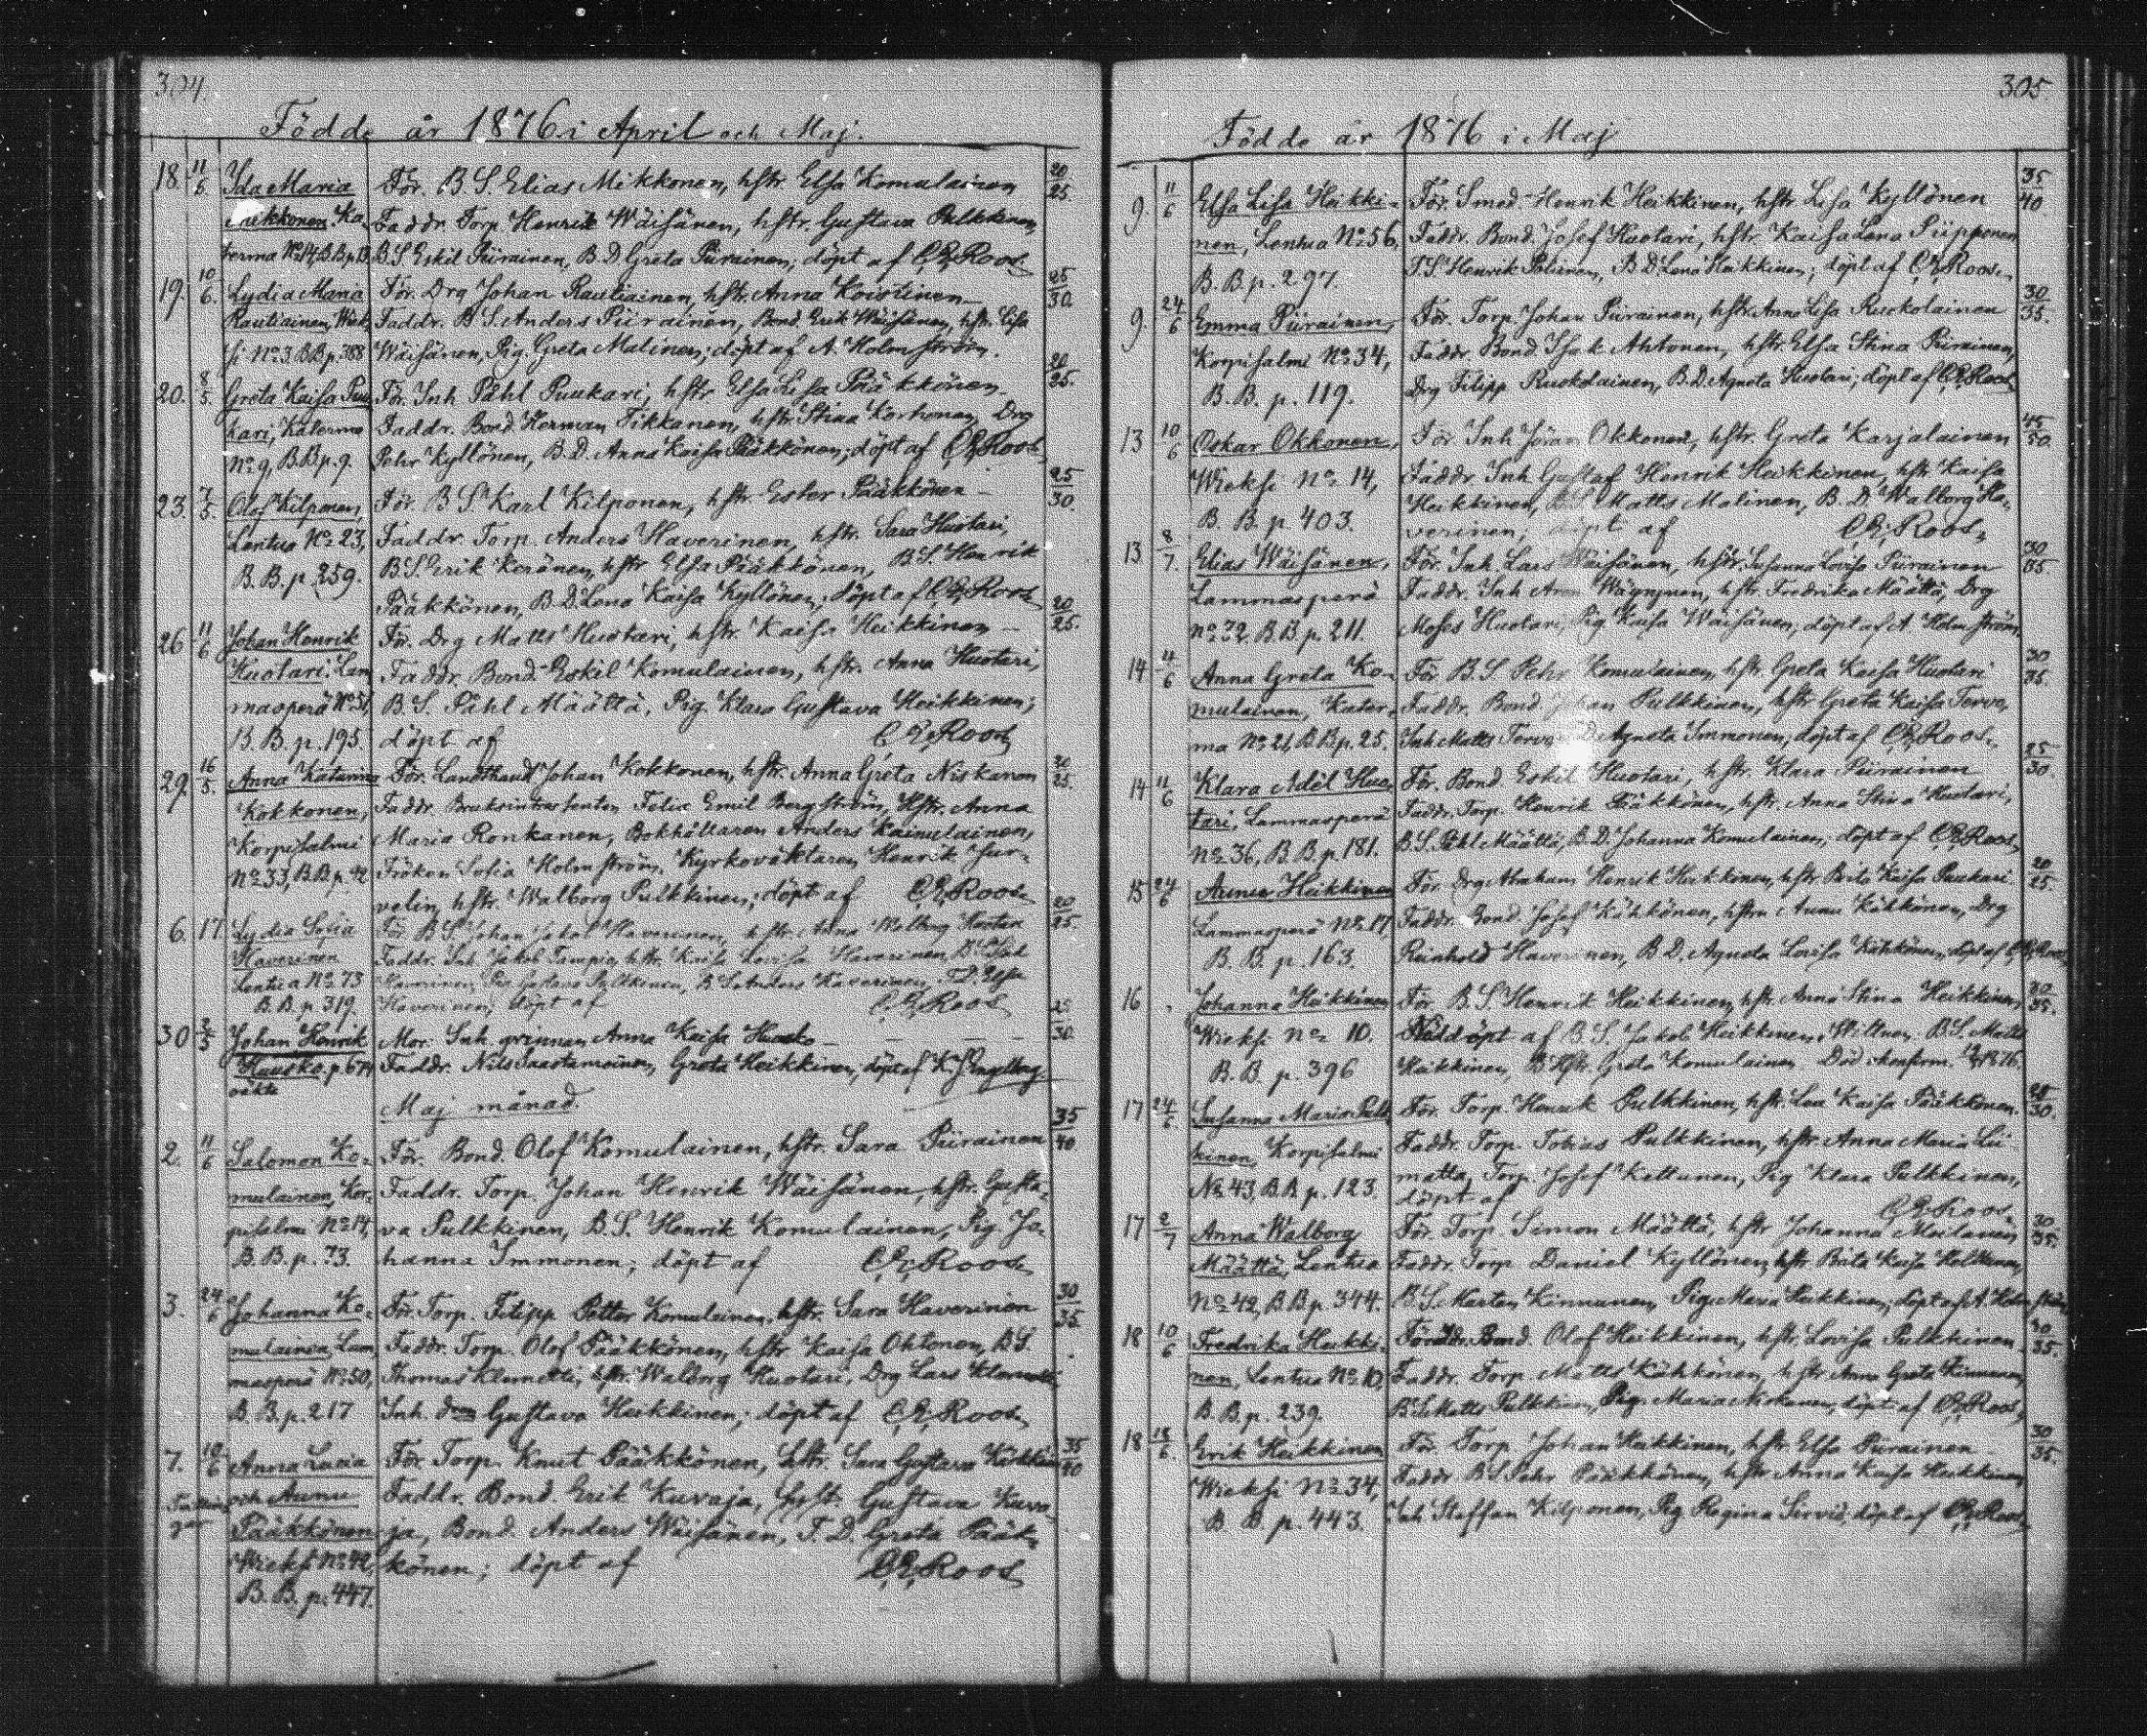 304.
Födde år 1876 i April och Maj.
18. 11/5 Ida Maria För. B. S. Elias Mikkonen, hstr Elsa Komulainen 20/25.
Mikkonen Ka- Faddr. Torp. Henrik Wäisänen, hstr. Gustava Pulkkinen,
terma B. S Eskil Piirainen, B. D Greta Piirainen; döpt af C. E. Roos
19. 10/6. Lydia Maria För. Drg Johan Rautiainen, hstr. Anna Koistinen 25/30.
Rautiainen, Wiek- Faddr. B S. Anders Piirainen, Bond. Erik Wäisänen, hstr. Lisa
si No 3. B B p. 388 Wäisänen, Pig. Greta Malinen; döpt af A. Holmström.
20. 8/5. Greta Kaisa Puu- För. Inh Påhl Puukari, hstr Elsa Lisa Pääkkönen 20/25.
kari, Katerma Faddr. Bond Herman Tikkanen, hstr. Stina Korhonen, Drg
No 9, B. B p. 9. Pehr Kyllönen, B. D. Anna Kaisa Pääkkönen; döpt af C. E. Roos
23. 7/5. Olof Kilponen, För. B S. Karl Kilponen, hstr. Ester Pääkkönen 25/30
Lentua No 23, Faddr. Torp. Anders Haverinen, hstr. Sara Huotari,
B. B. p. 259. B. S. Erik Keränen, hstr Elsa Pääkkönen, B. S. Henrik
Pääkkönen, B. D. Lena Kaisa Kyllönen; döpt af C. E. Roos
26 11/6 Johan Henrik För. Drg Matts Huotari, hstr. Kaisa Heikkinen 20/25.
Huotari, Lam- Faddr. Bond. Eskil Komulainen, hstr. Anna Huotari,
masperä No 51, B. S. Påhl Määttä, Pig. Klara Gustava Heikkinen;
B. B. p. 195. döpt af C. E. Roos
29. 16/5. Anna Katarina För. Landthandl Johan Kokkonen, hstr. Anna Greta Niskanen 20/25.
Kokkonen, Faddr. Bruksintressenten Felix Emil Bergström, Hstr. Anna
Korpisalmi Maria Ronkanen, Bokhållaren Anders Kainulainen,
No 33, B B p. 92 Fröken Sofia Holmström, Kyrkoväktaren Henrik Jur-
velin, hstr. Walborg Pulkkinen; döpt af C. E. Roos
6. 17. Lydia Sofia För B S Johan Haverinen, hstr. Anna Walborg Huotari 20/25.
Haverinen Faddr. Inh. Jakob hstr. Kaisa Lovisa Haverinen,
Lentua No 73 Haverinen, Pig Gustava Pulkkinen, B S Anders Haverinen, T. D. Elsa
B. B. p. 319. Haverinen; döpt af C. E. Roos
30 2/5 Johan Henrik Mor: Inh. qvinnan Anna Kaisa Hausko 25/30.
Hausko, p. 679 Faddr. Nils Saastamoinen, Greta Heikkinen, döpt af K. J. Engelberg
oäkta
Maj månad.
2. 11/6 Salomon Ko- För. Bond. Olof Komulainen, hstr. Sara Piirainen 35/40
mulainen, Kor- Faddr. Torp. Johan Henrik Wäisänen, hstr. Gusta-
pisalmi No 14, va Pulkkinen, B. S. Henrik Komulainen, Pig. Jo-
B. B. p. 73. hanna Immonen; döpt af C. E. Roos
3. 24/6 Johanna Ko- För. Torp. Filipp Petter Komulainen, hstr. Sara Haverinen 30/35.
mulainen, Lam- Faddr. Torp. Olof Pääkkönen, hstr Kaisa Ohtonen, B S.
masperä No 50, Thomas Klemetti, hstr. Walborg Huotari, Drg Lars Klemetti,
B. B. p. 217 Inh. Gustava Heikkinen; döpt af C. E. Roos
7. 10/6 Anna Lucia För. Torp. Knut Pääkkönen, hstr. Sara Gustava Heikkinen 35/40
och Annu Faddr. Bond. Erik Kuvaja, hstr. Gustava Kuva-
Pääkkönen ja, Bond. Anders Wäisänen, T. D. Greta Pääk-
Wieksi No 42, könen; döpt af C. E. Roos
B. B. p. 447.
305.
Födde år 1876 i Maj
9. 11/6 Elsa Lisa Heikki- För. Smed Henrik Heikkinen, hstr. Lisa Kyllönen 35/40.
nen, Lentua No 56, Faddr. Bond. Josef Huotari, hstr. Kaisa Lena Piipponen
B. B p. 297. T. S. Henrik B. D. Lena Heikkinen; döpt af C. E. Roos
9. 24/6 Emma Piirainen, För. Torp. Johan Piirainen, hstr. Anna Lisa Ruokolainen 30/35.
Korpisalmi No 34, Faddr. Bond. Isak Ahtonen, hstr Elsa Stina Piirainen,
B. B. p. 119. Drg Filipp Ruokolainen, B. D. Agneta Huotari; döpt af C. E. Roos
13 10/6 Oskar Okkonen, För Inh Jöran Okkonen, hstr. Greta Karjalainen 45/50.
Wieksi No 14, Faddr Inh Gustaf Henrik Heikkinen, hstr Kaisa
B. B. p. 403. Heikkinen, B. S. Matts Malinen, B. D. Walborg Ha-
verinen; döpt af C. E. Roos
13 8/7. Elias Wäisänen, För. Inh Lars Wäisänen, hstr. Susanna Lovisa Piirainen 30/35.
Lammasperä Faddr. Inh hstr. Fredrika Määttä, Drg
No 32 B B p. 211. Moses Huotari, Pig Kaisa Wäisänen; döpt af A. Holmström
14 4/6 Anna Greta Ko- För B. S. Pehr Komulainen, hstr Greta Kaisa Huotari 30/35.
mulainen, Kater- Faddr. Bond Johan Pulkkinen, hstr Greta Kaisa Tervo,
ma No 21, B. B p. 25. Inh Matts Tervo D. Agneta Immonen; döpt af C. E. Roos
14 11/6 Klara Adél Huo- För. Bond. Eskil Huotari, hstr. Klara Piirainen 25/30.
tari, Lammasperä Faddr. Torp. Henrik Pääkkönen, hstr. Anna Stina Huotari,
No 36, B. B p. 181. B. S. Påhl Määttä, B. D. Johanna Komulainen; döpt af C. E. Roos
15 24/6 Annu Heikkinen För. Drg Abraham Henrik Heikkinen, hstr Brita Kaisa Puukari 20/25.
Lammasperä No 17 Faddr. Bond. Josef Kähkönen, hstru Annu Kähkönen, Drg
B. B. p. 163. Reinhold Haverinen, B D. Agneta Lovisa Kähkönen; döpt af C. E. Roos
16 Johanna Heikkinen För. B. S Henrik Heikkinen, hstr. Anna Stina Heikkinen 30/35.
Wieksi No 10. Nöddöpt af B. S. Jakob Heikkinen, Wittnen B. S. Matts
B. B. p. 396 Heikkinen, B. Hstr. Greta Komulainen. Död 1876.
17 24/6. Susanna Maria Pulk- För. Torp. Henrik Pulkkinen, hstr. Lea Kaisa Pääkkönen. 25/30.
kinen, Korpisalmi Faddr. Torp. Tobias Pulkkinen, hstr. Anna Maria Lii-
No 43, B B. p. 123. matta, Torp. Josef Keltunen, Pig Klara Pulkkinen,
döpt af C. E. Roos
17 2/7 Anna Walborg För. Torp. Simon Määttä, hstr Johanna Meilanen 30/35.
Määttä, Lentua Faddr. Torp. Daniel Kyllönen, hstr Brita Kaisa
No 42, B. B p. 344. B. S. Marten Kinnunen, Pig. Maria Heikkinen; döpt af A. Holmström
18 10/6 Fredrika Heikki- För. Bond. Olof Heikkinen, hstr. Lovisa Pulkkinen 30/35.
nen, Lentua No 10, Faddr. Torp. Matts Kähkönen, hstr Anna Greta Kinnunen
B. B. p. 239. B. S. Matts Pulkkinen, Pig. Maria döpt af C. E. Roos
18 18/6. Erik Heikkinen För. Torp. Johan Heikkinen, hstr. Elsa Piirainen 30/35.
Wieksi No 34, Faddr. B. S. Pehr Pääkkönen, hstr Anna Kaisa Heikkinen,
B. B. p. 443. Inh Staffan Kilponen, Pig Regina Sirviö; döpt af C. E. Roos